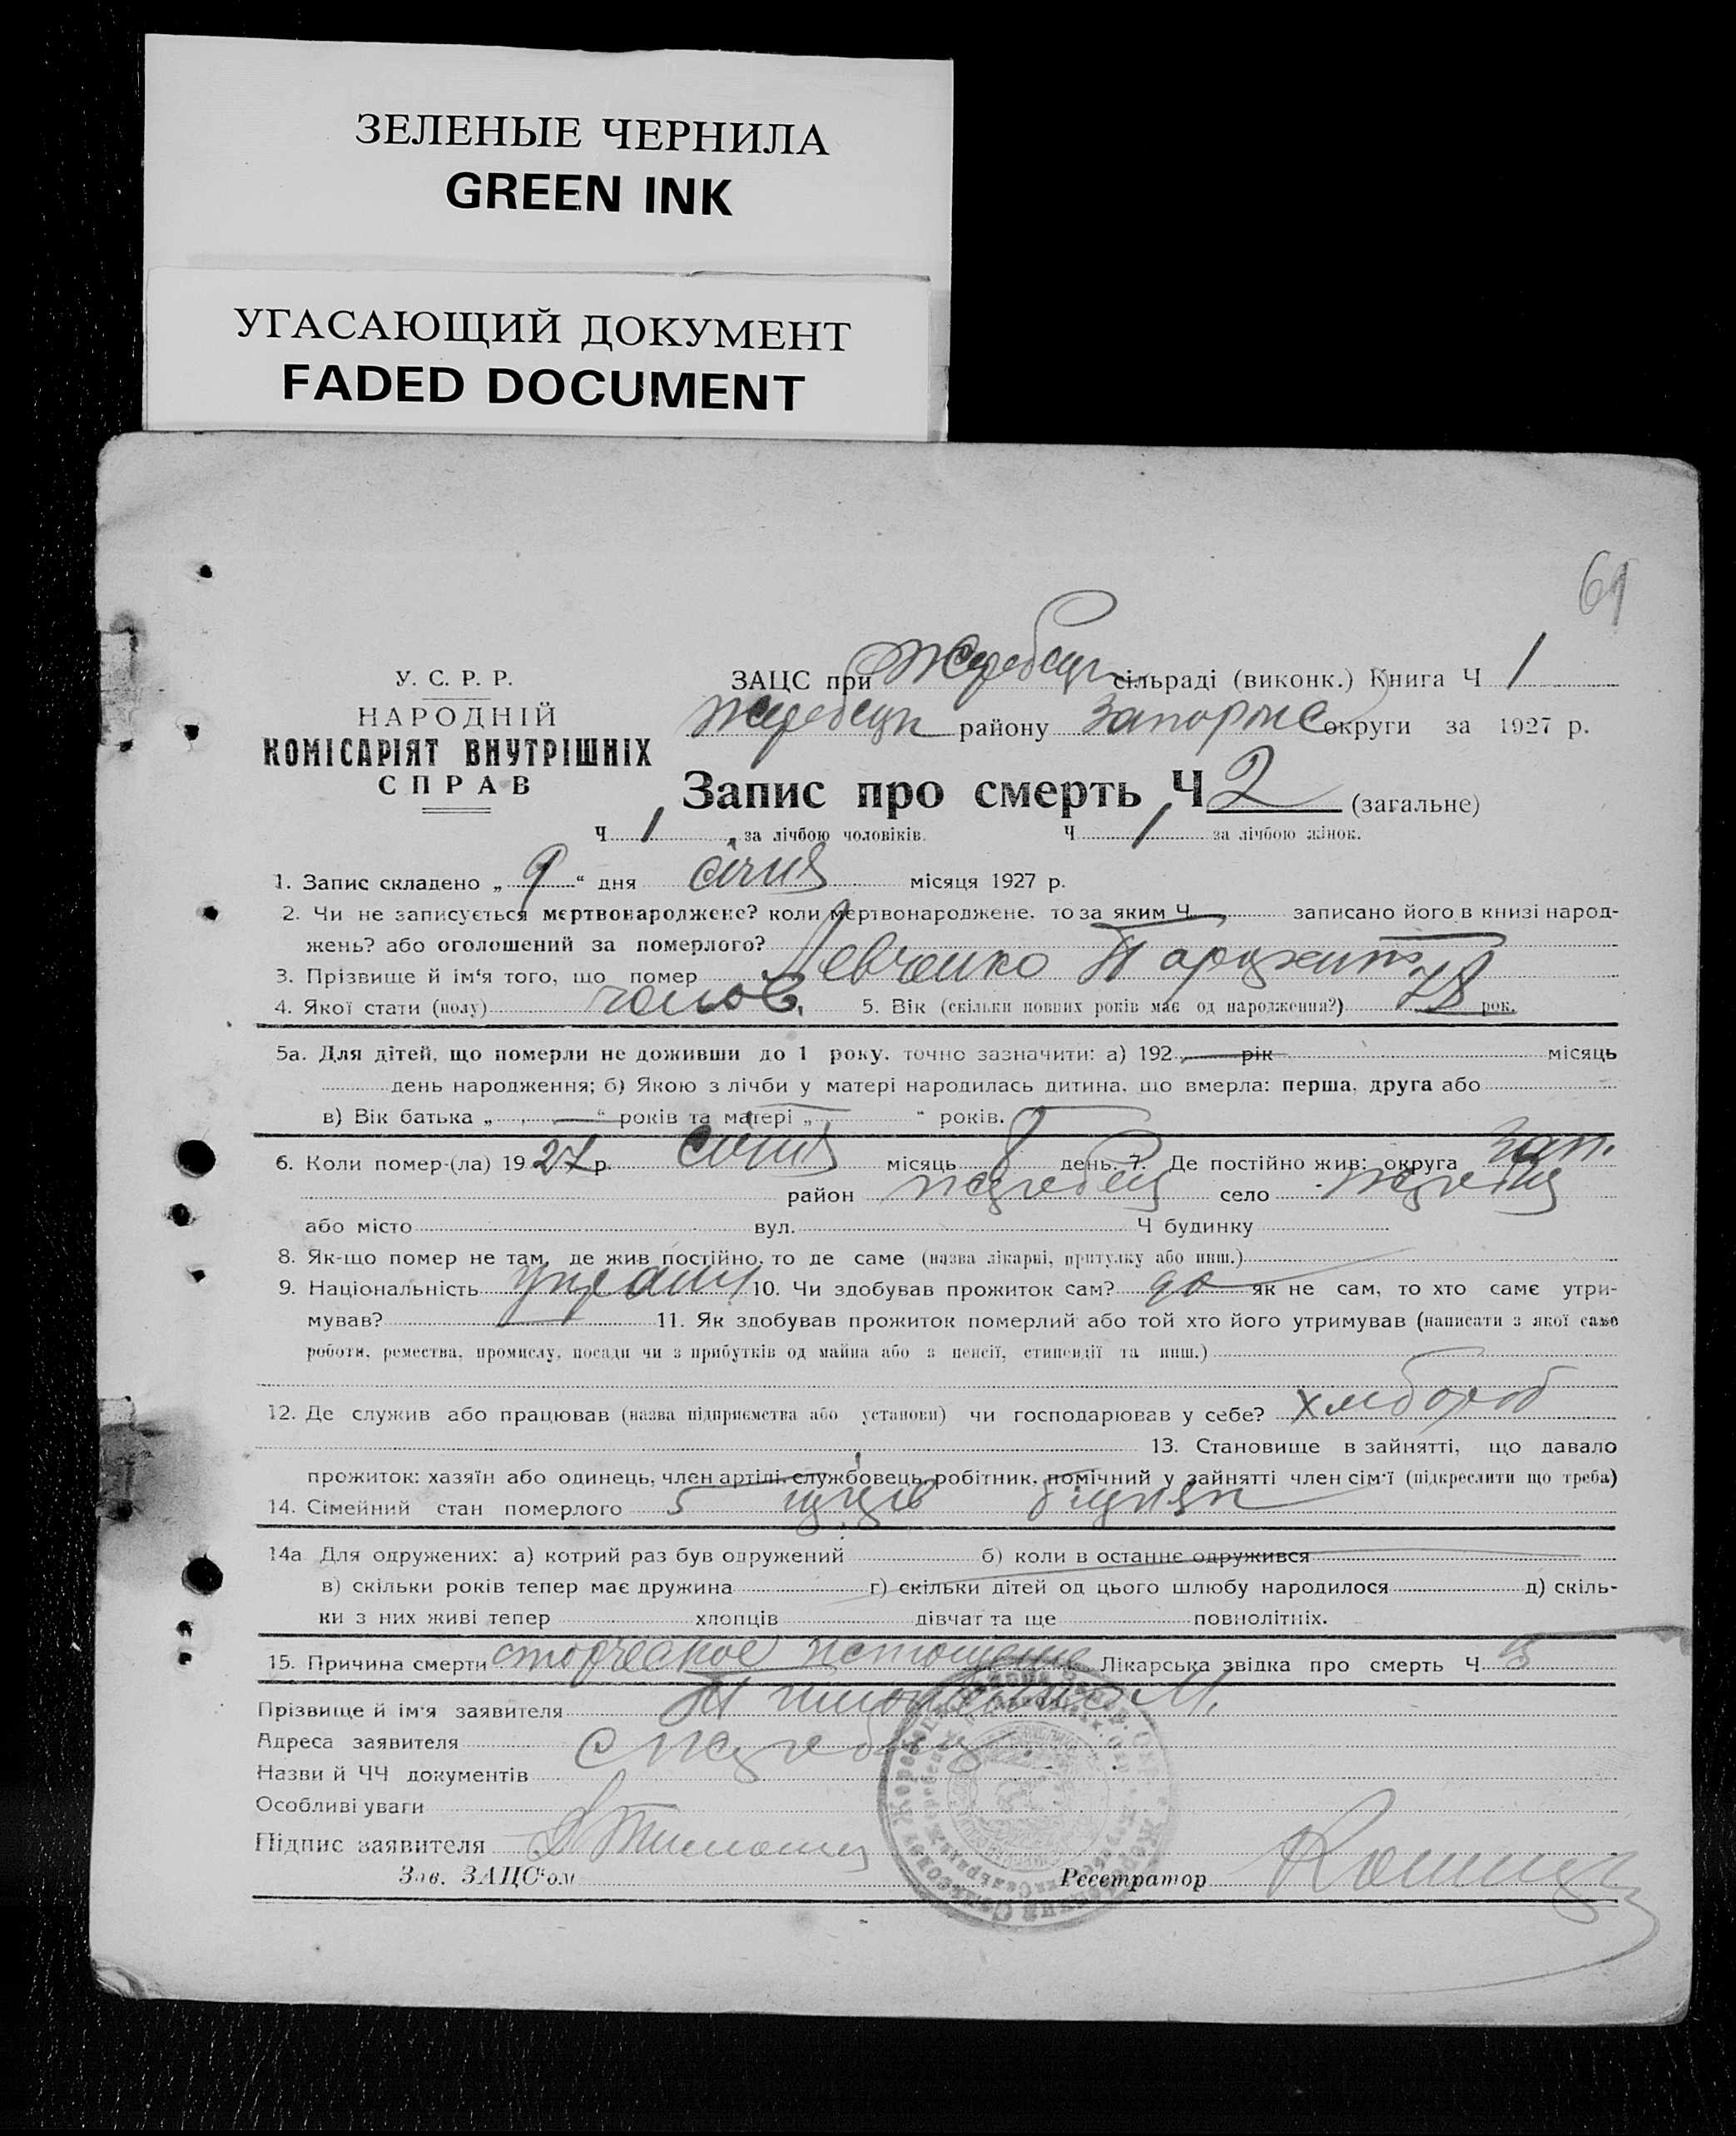 ЗЕЛЕНЫЕ ЧЕРНИЛА
GREEN INK
УГАСАЮЩИЙ ДОКУМЕНТ
FADED DOCUMENT
61
У. С. Р. Р.
НАРОДНІЙ
КОМІСАРІЯТ ВНУТРІШНІХ
СПРАВ
ЗАЦС при Жеребецк сільраді (виконк.) Книга Ч 1
Жеребецк району Запоріж округи за 1927 р.
Запис про смерть Ч 2 (загальне)
Ч 1 за лічбою чоловіків. Ч 1 за лічбою жінок.
1. Запис складено „ 9 “ дня січня місяця 1927 р.
2. Чи не записується мертвонароджене? коли мертвонароджене, то за яким Ч. записано його в книзі народ-
жень? або оголошений за померлого?
3. Прізвище й ім‘я того, що помер Левченко
4. Якої стати (полу) чолов. 5. Вік (скільки повних років має од народження?) 78 рок.
5а. Для дітей, що померли не доживши до 1 року, точно зазначити: а) 192 рік місяць
день народження; б) Якою з лічби у матері народилась дитина, що вмерла: перша, друга або
в) Вік батька „ “ років та матері „ “ років.
6. Коли помер-(ла) 1927 р. січня місяць 8 день. 7. Де постійно жив: округа Зап.
район Жеребец село Жеребец
або місто вул. Ч будинку
8. Як-що помер не там, де жив постійно, то де саме (назва лікарні, притулку або инш.)
9. Національність україн 10. Чи здобував прожиток сам? да як не сам, то хто саме утри-
мував? 11. Як здобував прожиток померлий або той хто його утримував (написати з якої само
роботи, ремества, промислу, посади чи з прибутків од майна або з пенсії, стипендії та инш.)
12. Де служив або працював (назва підприємства або установи) чи господарював у себе? хлібороб
13. Становище в зайнятті, що давало
прожиток: хазяїн або одинець, член артілі, службовець, робітник, помічний у зайнятті член сім‘ї (підкреслити що треба)
14. Сімейний стан померлого 5
14а Для одружених: а) котрий раз був одружений б) коли в останнє одружився
в) скільки років тепер має дружина г) скільки дітей од цього шлюбу народилося д) скіль-
ки з них живі тепер хлопців дівчат та ще повнолітніх.
15. Причина смерти старческое истощение Лікарська звідка про смерть Ч
Прізвище й ім‘я заявителя М.
Адреса заявителя с Жеребец
Назви й ЧЧ документів
Особливі уваги
Підпис заявителя
Зав. ЗАЦС‘ом Реєстратор